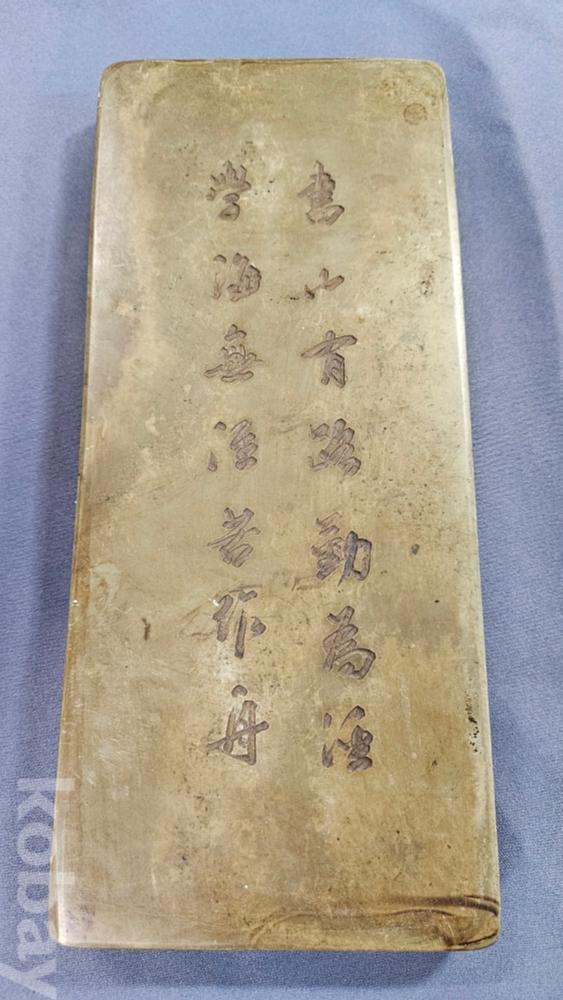 書山有路勤為徑
學海無涯苦作舟
kobay